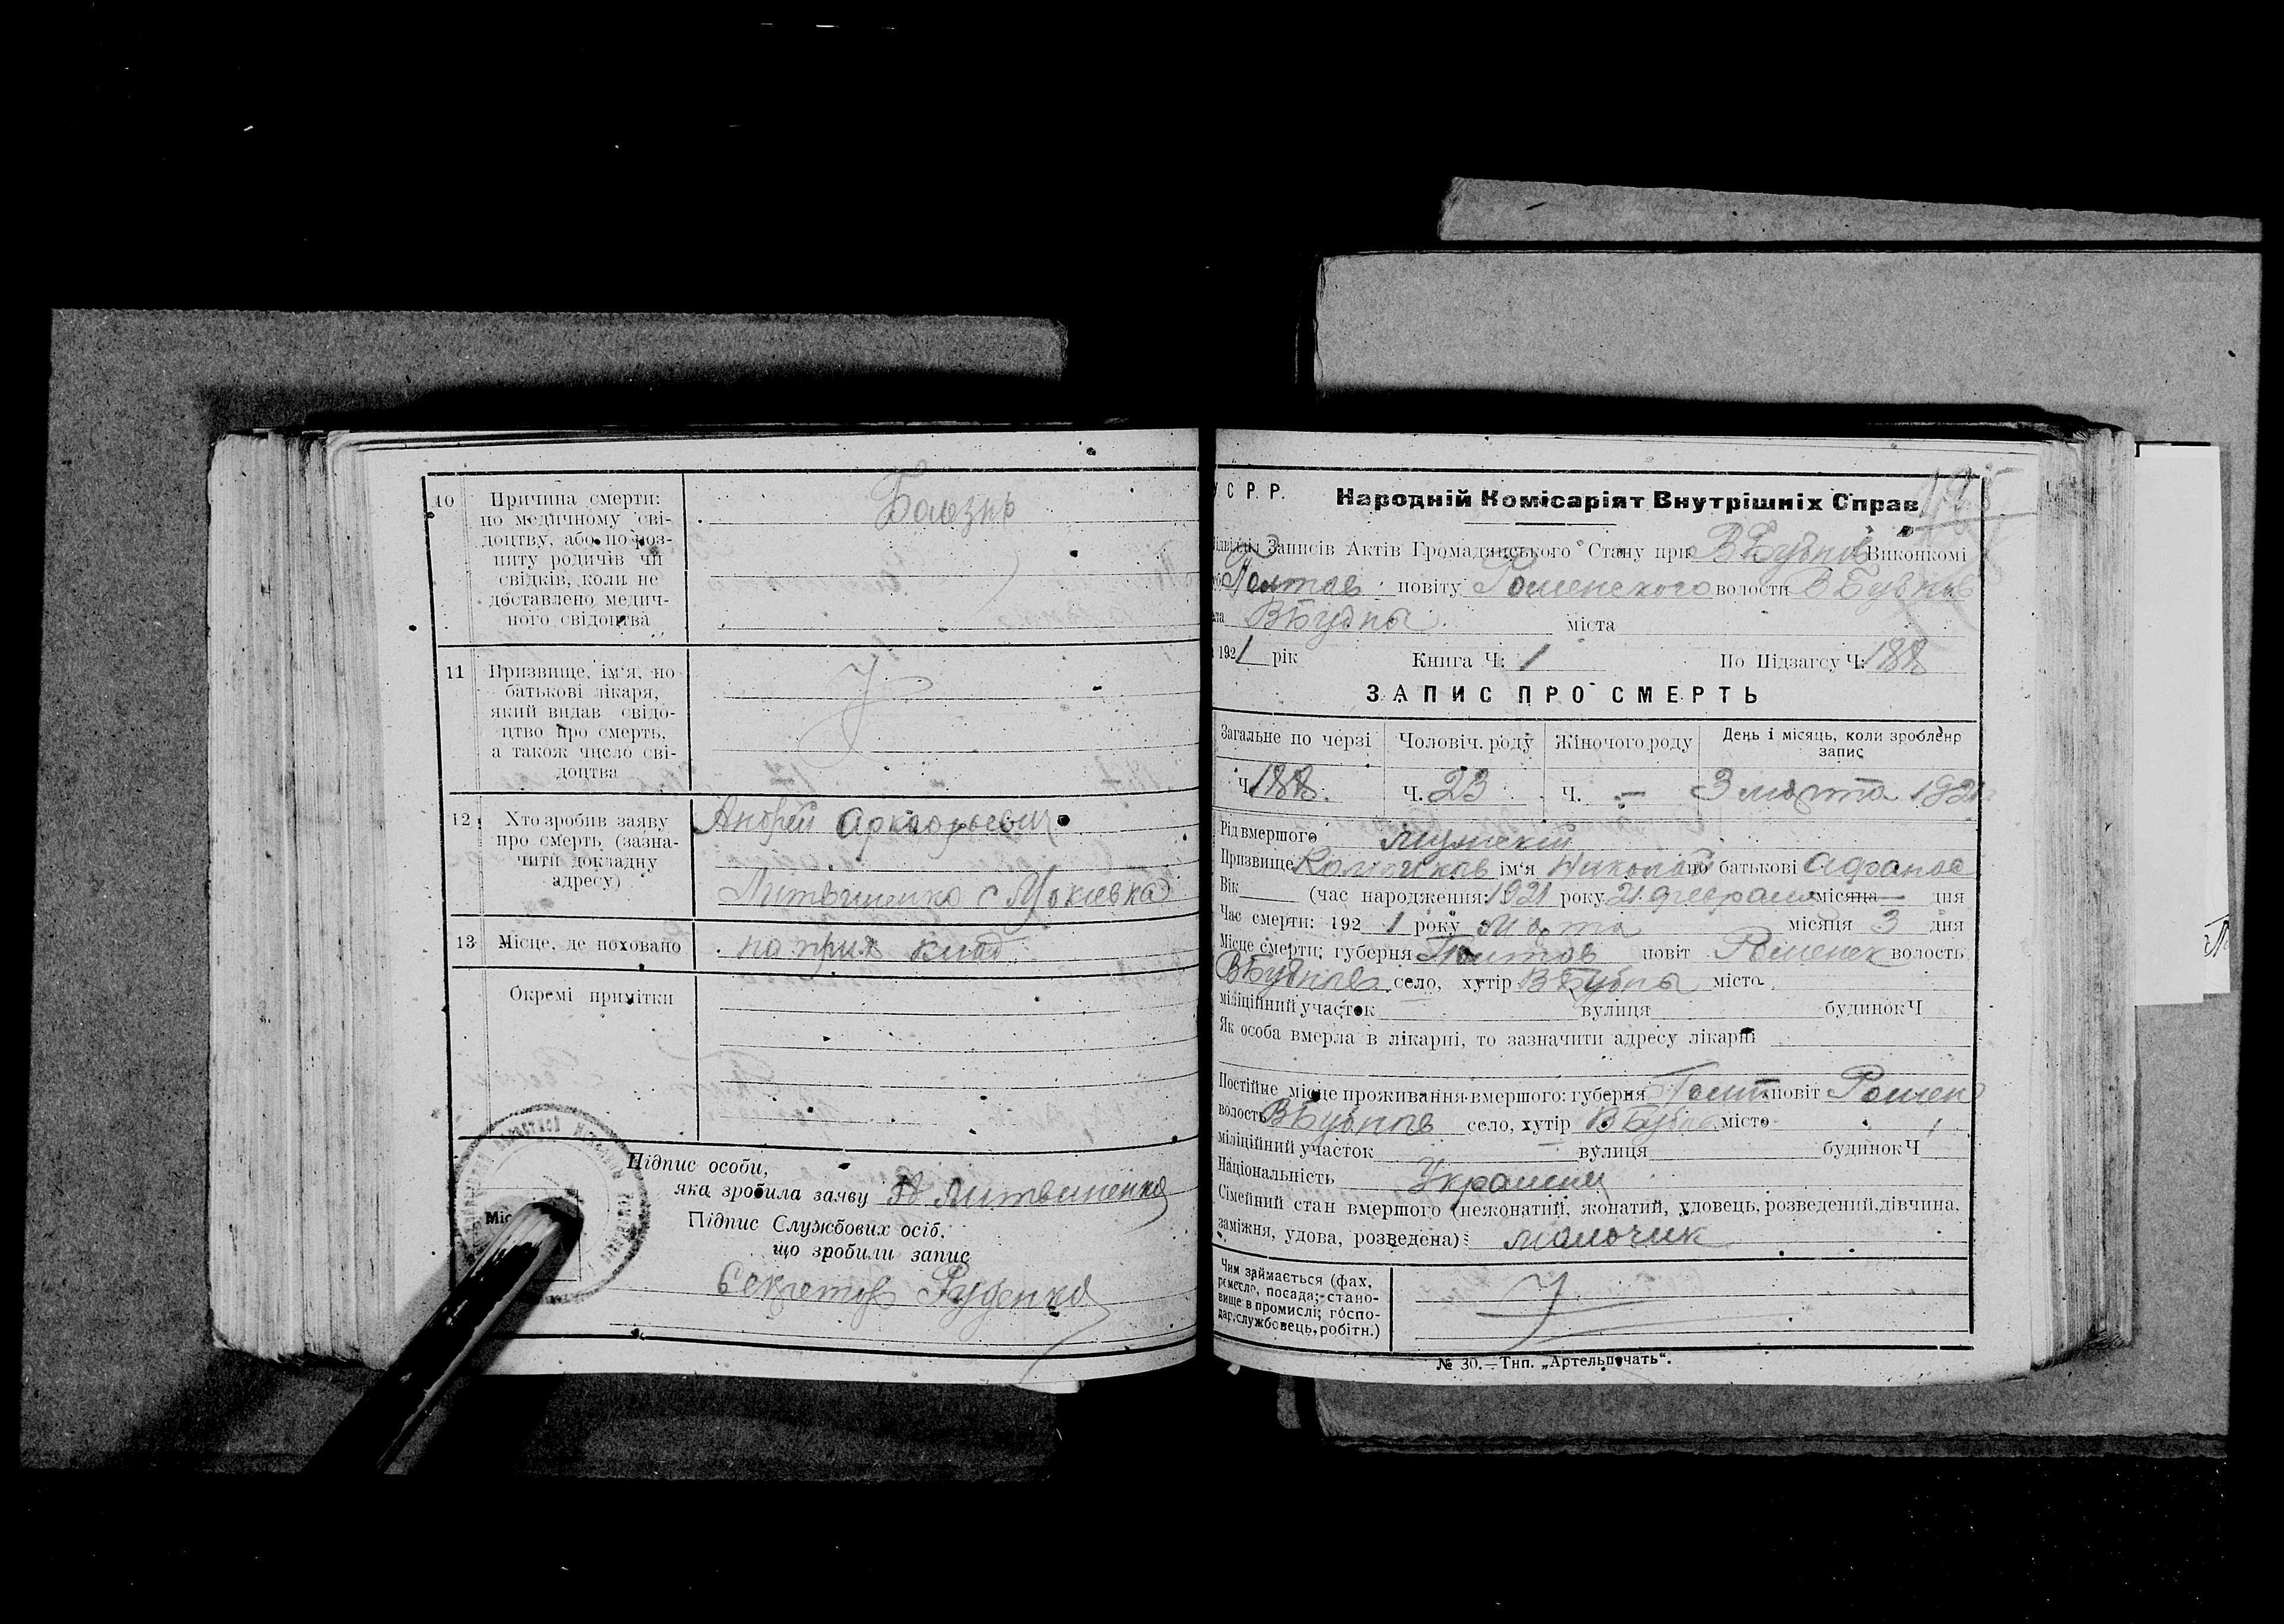 10
Причина смерти:
по медичному сві-
доцтву, або по роз-
питу родичів чи
свідків, коли не
доставлено медич-
ного свідоцтва
Болезнь
11
Призвище, ім'я, по
батькові лікаря,
який видав свідо-
цтво про смерть,
а також число сві-
доцтва
12
Хто зробив заяву
про смерть (зазна-
чити докладну
адресу)
Андрей
Литвиненко с Мокиевка
13
Місце, де поховано
на прих клад
Окремі примітки
Підпис особи,
яка зробила заяву А Литвиненко
Підпис Службових осіб,
що зробили запис
Секретар Руденко
У С Р. Р. Народній Комісаріят Внутрішніх Справ
Відділ Записів Актів Громадянського Стану при ВБубнов Виконкомі
Полтав повіту Роменского волости ВБубнов
ВБубны міста
1921 рік Книга Ч: 1 По Підзагсу Ч: 188
ЗАПИС ПРО СМЕРТЬ
Загальне по черзі Чоловіч. роду Жіночого роду День і місяць, коли зроблено
запис
Ч. 188. Ч. 23 Ч. — 3 марта 1921
Рід вмершого мужский
Призвище ім'я Николай по батькові Афанас
Вік (час народження: 1921 року 21 февраля місяца дня
Час смерти: 1921 року Марта місяця 3 дня
Місце смерти: губерня Полтав повіт Роменск волость
ВБубнов село, хутір ВБубны місто
міліційний участок вулиця будинок Ч
Як особа вмерла в лікарні, то зазначити адресу лікарні
Постійне місце проживання вмершого: губерня Полт повіт Ромен
волость ВБубнов село, хутір ВБубны місто
міліційний участок вулиця будинок Ч
Національність Украинец
Сімейний стан вмершого (нежонатий, жонатий, удовець, розведений, дівчина,
заміжня, удова, розведена): мальчик
Чим займається (фах,
ремесло, посада; стано-
вище в промислі; госпо-
дар, службовець, робітн.)
№ 30.—Тип. „Артельпечать".